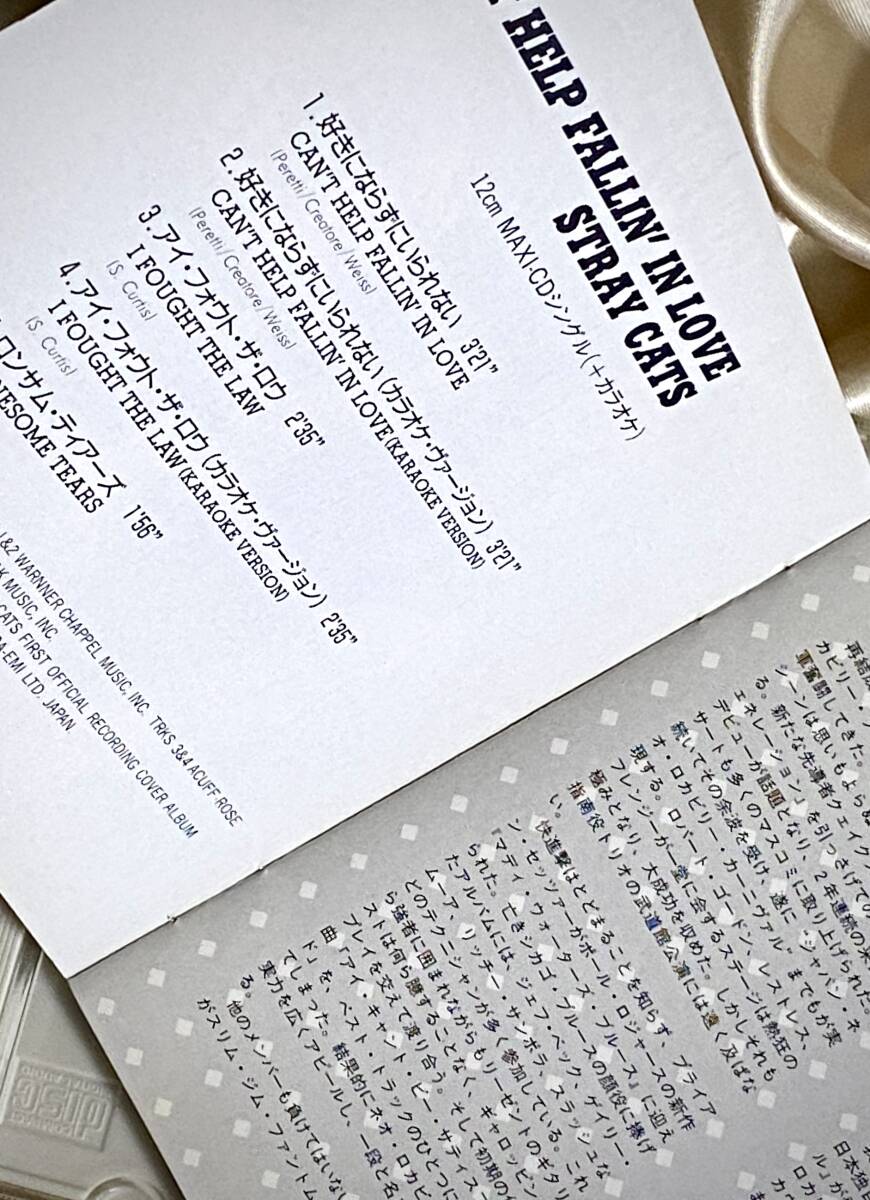 HELP FALLIN' IN LOVE
STRAY CATS
12cm MAXI-CDシングル(+カラオケ)
1. 好きにならずにいられない 3'21"
CAN'T HELP FALLIN' IN LOVE
(Peretti/Creatore/Weiss)
2. 好きにならずにいられない(カラオケ・ヴァージョン) 3'21"
CAN'T HELP FALLIN' IN LOVE(KARAOKE VERSION)
(Peretti/Creatore/Weiss)
3. アイ・フォウト・ザ・ロウ 2'35"
I FOUGHT THE LAW
(S. Curtis)
4. アイ・フォウト・ザ・ロウ(カラオケ・ヴァージョン) 2'35"
I FOUGHT THE LAW(KARAOKE VERSION)
(S. Curtis)
ロンサム・ティアーズ 1'56"
NESOME TEARS
1&2 WARNNER CHAPPEL MUSIC, INC. TRKS 3&4 ACUFF ROSE
K MUSIC, INC.
CATS FIRST OFFICIAL RECORDING COVER ALBUM
A-EMI LTD. JAPAN
再結
カビリー・
軍奮闘してきた。
シーンは思いもよらぬ
る。新たな先導者クェイク
ェネレーション』を引っさげての
デビューが話題となり、2年連続の来
サートも多くのマスコミに取り上げられた。
続いてその余波を受け、遂に『ジャパン・ネ
オ・ロカビリー・カーニヴァル』までもが実
現する。ロバート・ゴードン、レストレス、
フレンジーが一堂に会するステージは熱狂の
極みとなり、大成功を収めた。しかしそれも
指南役トリオの武道館公演には遠く及ばな
い。
快進撃はとどまることを知らず、ブライア
ン・セッツァーがポール・ロジャースの新作
『マディ・ウォーターズ・ブルース』に迎え
られた。亡きシカゴ・ブルースの顔役に捧げ
たアルバムには、ジェフ・ベック、ゲイリー・
ムーア、リッチー・サンボラ、スラッシュな
どのテクニシャンが多く参加している。これ
ら強者に囲まれながらもリーゼントのギタリ
ストは何ら臆することなく、ギャロッピン
プレイを交えて渡り合う。そして初期の
曲『アイ・キャント・ビー・サティス
ド』を、ベスト・トラックのひとつに
てしまった。結果的にネオ・ロカビ
実力を広くアピールし、一段と名
る。
他のメンバーも負けてはいない
がスリム・ジム・ファントム
日本独
ル』が
ロカ
カ
COMPACT
disc
DIGITAL AUDIO